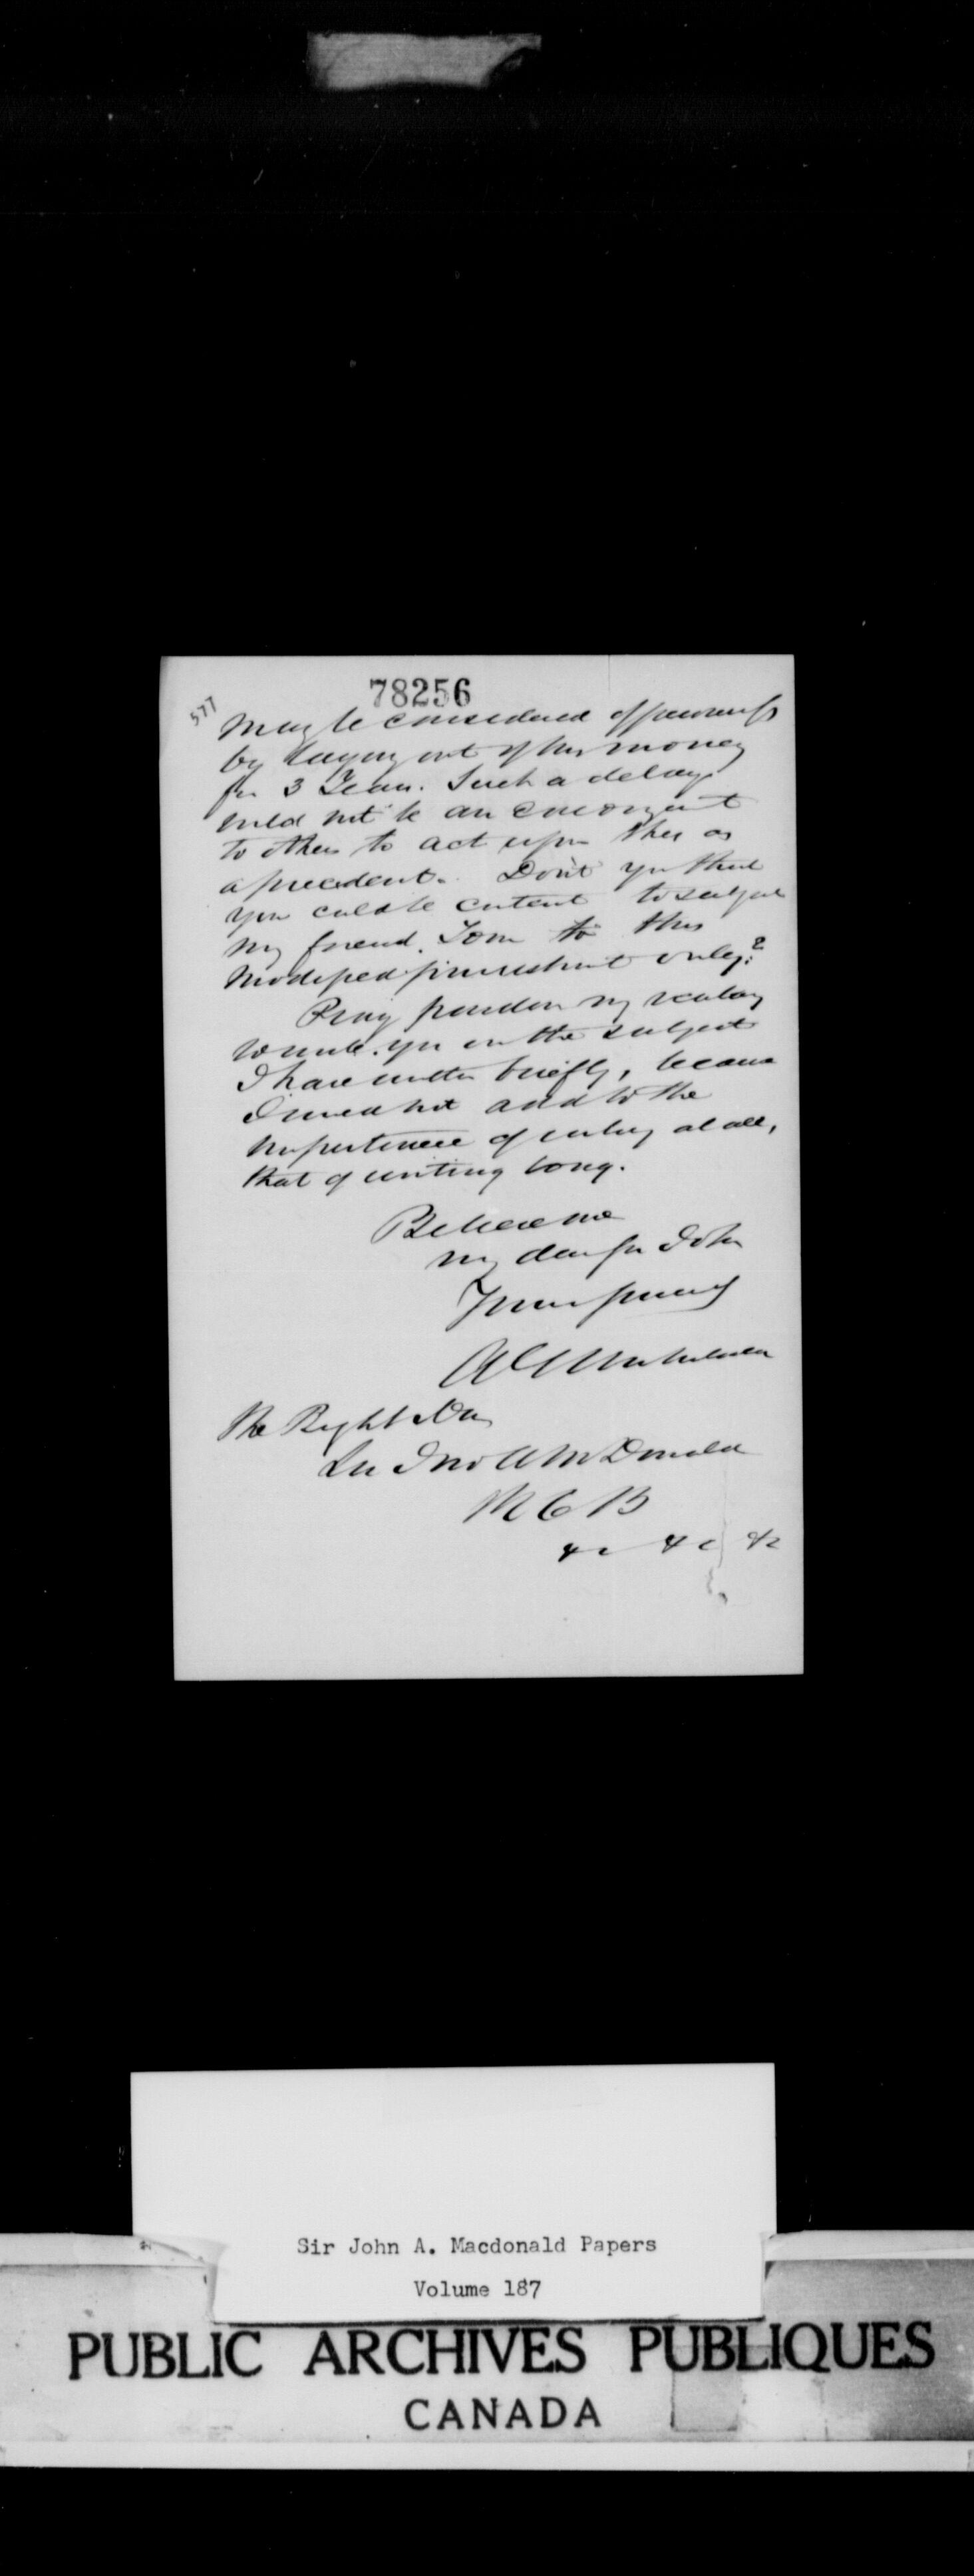 78256
577
may be considered
by laying out of his money
for 3 Years. Such a delay
would not be an
to others to act upon this as
a precedent. Don't you think
you could be content to subject
my friend Tom to this
modified punishment only?
Pray pardon my
you on the subject
I have written briefly, because
I would not add to the
impertinence of writing at all,
that of writing long.
Believe me
my dear Sir John
Yours
The Right Hon
Sir Jno A McDonald
K C B
&c &c &c
Sir John A. Macdonald Papers
Volume 187
PUBLIC ARCHIVES PUBLIQUES
CANADA